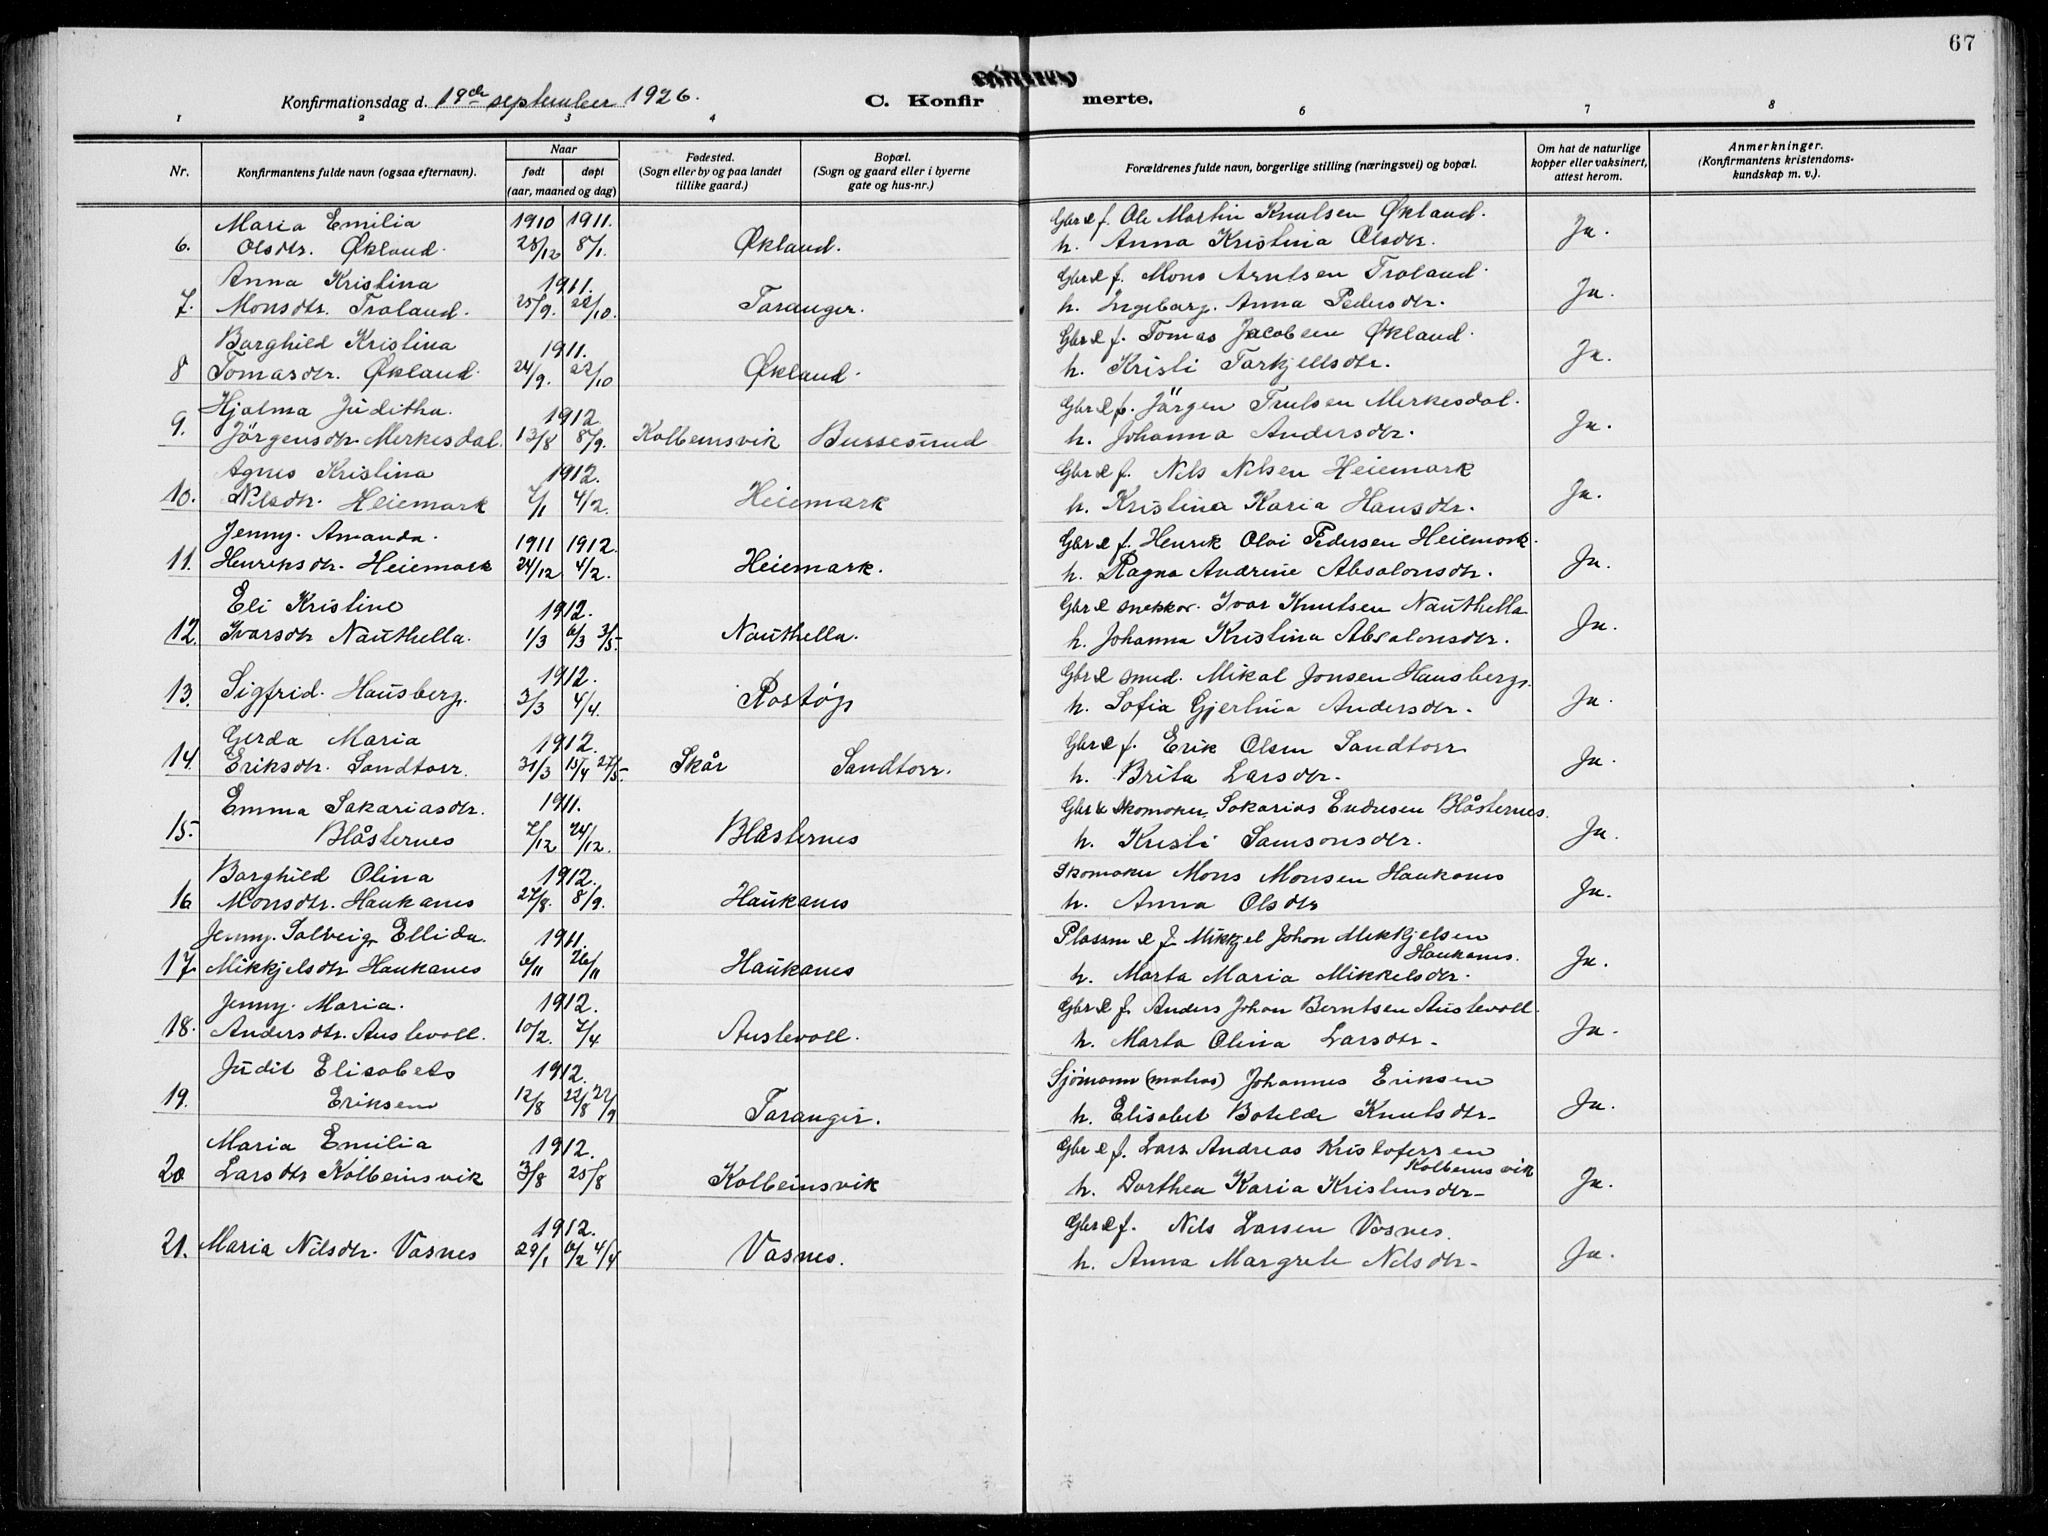 67
Konfirmationsdag d. 19de september 1926.
C. Konfirmerte.
1 2 3 4 6 7 8
Nr. | Konfirmantens fulde navn (ogsaa efternavn). | Naar født døpt (aar, maaned og dag) | Fødested. (Sogn eller by og paa landet tillike gaard.) | Bopæl. (Sogn og gaard eller i byerne gate og hus-nr.) | Forældrenes fulde navn, borgerlige stilling (næringsvei) og bopæl. | Om hat de naturlige kopper eller vaksinert, attest herom. | Anmerkninger. (Konfirmantens kristendoms-kundskap m. v.).
Maria Emilia 1910 1911. Gbr & f. Ole Martin Knutsen Økland.
6. Olsdtr. Økland. 28/12 8/1. Økland. h. Anna Kristina Olsdtr. Ja.
Anna Kristina 1911. Gbr & f. Mons Arntsen Troland.
7. Monsdtr. Troland. 25/9. 22/10. Taranger. h. Ingeborg Anna Pedersdtr. Ja.
Borghild Kristina 1911. Gbr & f. Tomas Jacobsen Økland.
8 Tomasdtr. Økland. 24/9. 22/10 Økland. h. Kristi Torkjellsdtr. Ja.
Hjalma Juditha. 1912. Gbr & f. Jörgen Trulsen Merkesdal.
9. Jörgensdtr. Merkesdal. 13/8 8/9. Kolbeinsvik Bussesund h. Johanna Andersdtr. Ja.
Agnes Kristina 1912. Gbr & f. Nils Nilsen Heiemark
10. Nilsdtr. Heiemark 7/1 4/2. Heiemark h. Kristina Karia Hansdtr. Ja.
Jenny. Amanda. 1911 1912. Gbr & f. Henrik Olai Pedersen Heiemark.
11. Henriksdtr. Heiemark 24/12 4/2. Heiemark. h. Ragna Andrine Absalonsdtr. Ja.
Eli Kristine 1912. Gbr & snekker. Ivar Knutsen Nauthella
12. Ivarsdtr Nauthella. 1/3 6/3 3/5. Nauthella. h. Johanna Kristina Absalonsdtr. Ja.
1912. Gbr & smed. Mikal Jonsen Hausberg.
13. Sigfrid. Hausberg. 3/3 4/4. Rostøy h. Sofia Gjertina Andersdtr. Ja.
Gerda Maria 1912. Gbr & f. Erik Olsen Sandtorr
14. Eriksdtr. Sandtorr. 31/3 15/4 27/5. Skår Sandtorr. h. Brita Larsdtr. Ja.
Emma Sakariasdtr. 1911. Gbr & skomaker Sakarias Endresen Blåsternes.
15. Blåsternes 7/12 24/12. Blåsternes h. Kristi Samsonsdtr. Ja.
Borghild Olina 1912. Skomaker Mons Monsen Haukanes
16 Monsdtr. Haukanes 27/8. 8/9. Haukanes h. Anna Olsdtr Ja.
Jenny. Solveig Ellida. 1911. Plassm & f. Mikkjel Johan Mikkjelsen Haukanes.
17 Mikkjelsdtr Haukanes 6/11 26/11 Haukanes h. Marta Maria Mikkelsdtr. Ja.
Jenny. Maria. 1912. Gbr & f. Anders Johan Berntsen Austevoll.
18. Andersdtr. Austevoll. 10/2. 7/4 Austevoll. h. Marta Olina Larsdtr. Ja.
Judit Elisabets 1912. Sjömann (matros) Johannes Eriksen
19. Eriksen 12/8 22/8 22/9 Taranger. h. Elisabet Botilde Knutsdtr. Ja.
Maria Emilia 1912. Gbr & f. Lars Andreas Kristofersen Kolbeinsvik
20 Larsdtr Kolbeinsvik 3/8 25/8 Kolbeinsvik h. Dorthea Karia Kristensdtr. Ja.
1912. Gbr & f. Nils Larsen Vasnes.
21. Maria Nilsdtr. Vasnes 29/1 6/2 4/4 Vasnes. h. Anna Margrete Nilsdtr. Ja.